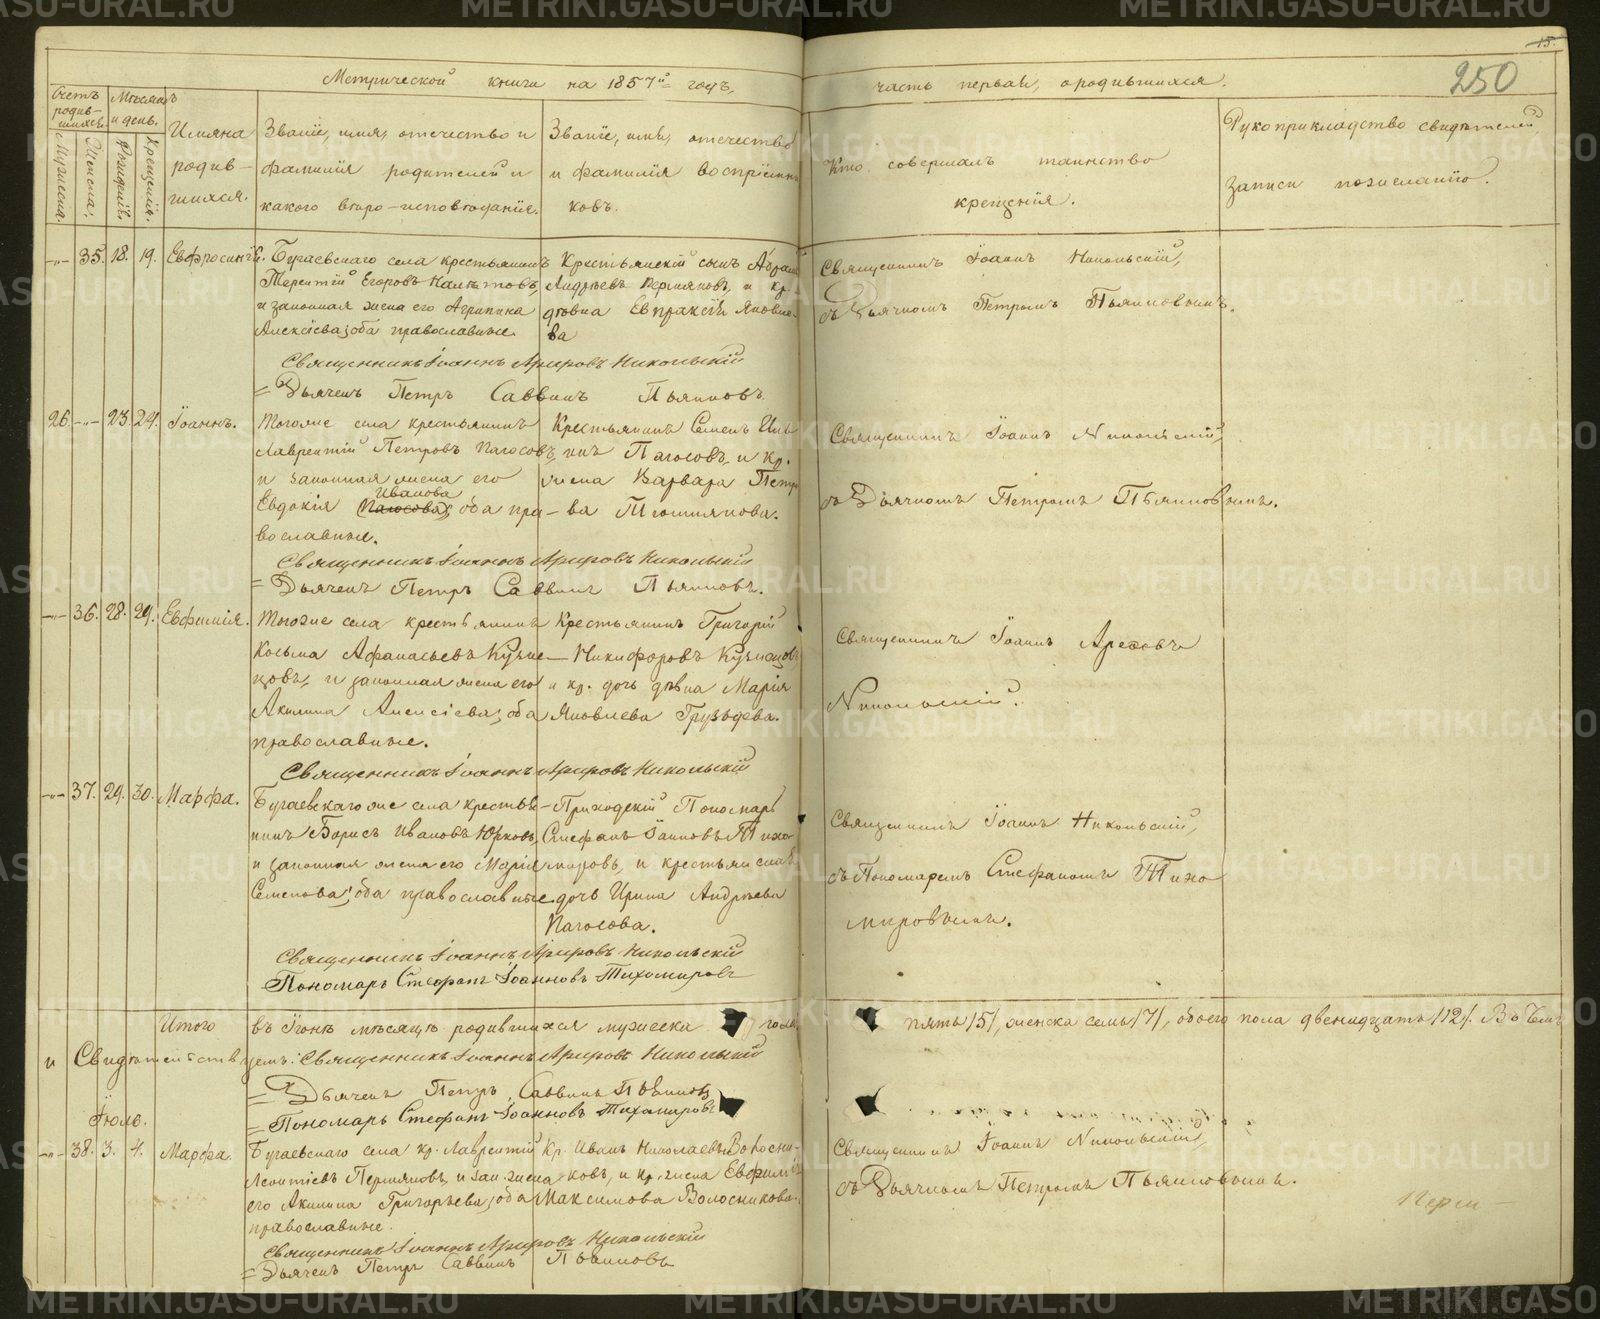 15.
250
Метрической книги на 1857й годъ,
часть первая, о родившихся.
Счетъ родив-
шихся.
Мѣсяцъ
и день.
Мужеска.
Женска.
Рожденія.
Крещенія.
Имяна
родив-
шихся.
Званіе, имя, отечество и
фамилія родителей и
какого вѣро-исповѣданія.
Званіе, имя, отечество
и фамилія воспріемни
ковъ.
Кто совершалъ таинство
крещенія.
Рукоприкладство свидѣтелей
записи по желанію.
-"- 35. 18. 19. Евфросинія.
Бугаевскаго села крестьянинъ
Терентій Егоровъ
и законная жена его Агрипина
Алексіева; оба православные.
Крестьянскій сынъ
Андреевъ Пермяковъ, и кр.
дѣвица Евпраксія Яковле-
ва
Священникъ Іоаннъ Никольскій,
съ Дьячкомъ Петромъ Пьянковымъ.
Священникъ Іоаннъ Арефовъ Никольскій
= Дьячекъ Петръ Саввинъ Пьянковъ.
26. -"- 23. 24. Іоаннъ.
Тогоже села крестьянинъ
Лаврентій Петровъ Пагосовъ,
и законная жена его
Евдокія Иванова Пагосова; оба пра-
вославные.
Крестьянинъ Семенъ Иль
инъ Пагосовъ, и кр.
жена Варвара Петр
ва Тюшнякова.
Священникъ Іоаннъ Никольскій,
съ Дьячкомъ Петромъ Пьянковымъ.
Священникъ Іоаннъ Арефовъ Никольскій
= Дьячекъ Петръ Саввинъ Пьянковъ.
-"- 36. 28. 29. Евфимія.
Тогоже села крестьянинъ
Козьма Афанасьевъ Кузне-
цовъ, и законная жена его
Акилина Алексіева; оба
православные.
Крестьянинъ Григорій
Никифоровъ Кузнецовъ
и кр. дочь дѣвица Марія
Яковлева Груздева.
Священникъ Іоаннъ Арефовъ
Никольскій.
Священникъ Іоаннъ Арефовъ Никольскій
-"- 37. 29. 30. Марфа.
Бугаевскаго же села крестья-
нинъ Борисъ Ивановъ Юрковъ,
и законная жена его Марія
Семенова; оба православные.
Приходскій Пономарь
Стефанъ Іоанновъ Тихо-
мировъ, и крестьянская
дочь Ирина Андреева
Пагосова.
Священникъ Іоаннъ Никольскій,
съ Пономаремъ Стефаномъ Тихо
мировымъ.
Священникъ Іоаннъ Арефовъ Никольскій
Пономарь Стефанъ Іоанновъ Тихомировъ
Итого въ Іюнѣ мѣсяцѣ родившихся мужеска пола
пять /5/, женска семь /7/, обоего пола двенадцать /12/. Въ чемъ
и Свидѣтельствуемъ: Священникъ Іоаннъ Арефовъ Никольскій
= Дьячекъ Петръ Саввинъ Пьянковъ
= Пономарь Стефанъ Іоанновъ Тихомировъ
Іюль.
-"- 38. 3. 4. Марфа.
Бугаевскаго села кр. Лаврентій
Леонтіевъ Пермяковъ, и зак. жена
его Акилина Григорьева; оба
православные.
Кр. Иванъ Николаевъ Волосни-
ковъ, и кр. жена Евфимія
Максимова Волосникова.
Священникъ Іоаннъ Никольскій,
съ Дьячкомъ Петромъ Пьянковымъ.
Священникъ Іоаннъ Арефовъ Никольскій
= Дьячекъ Петръ Саввинъ Пьянковъ
METRIKI.GASO-URAL.RU